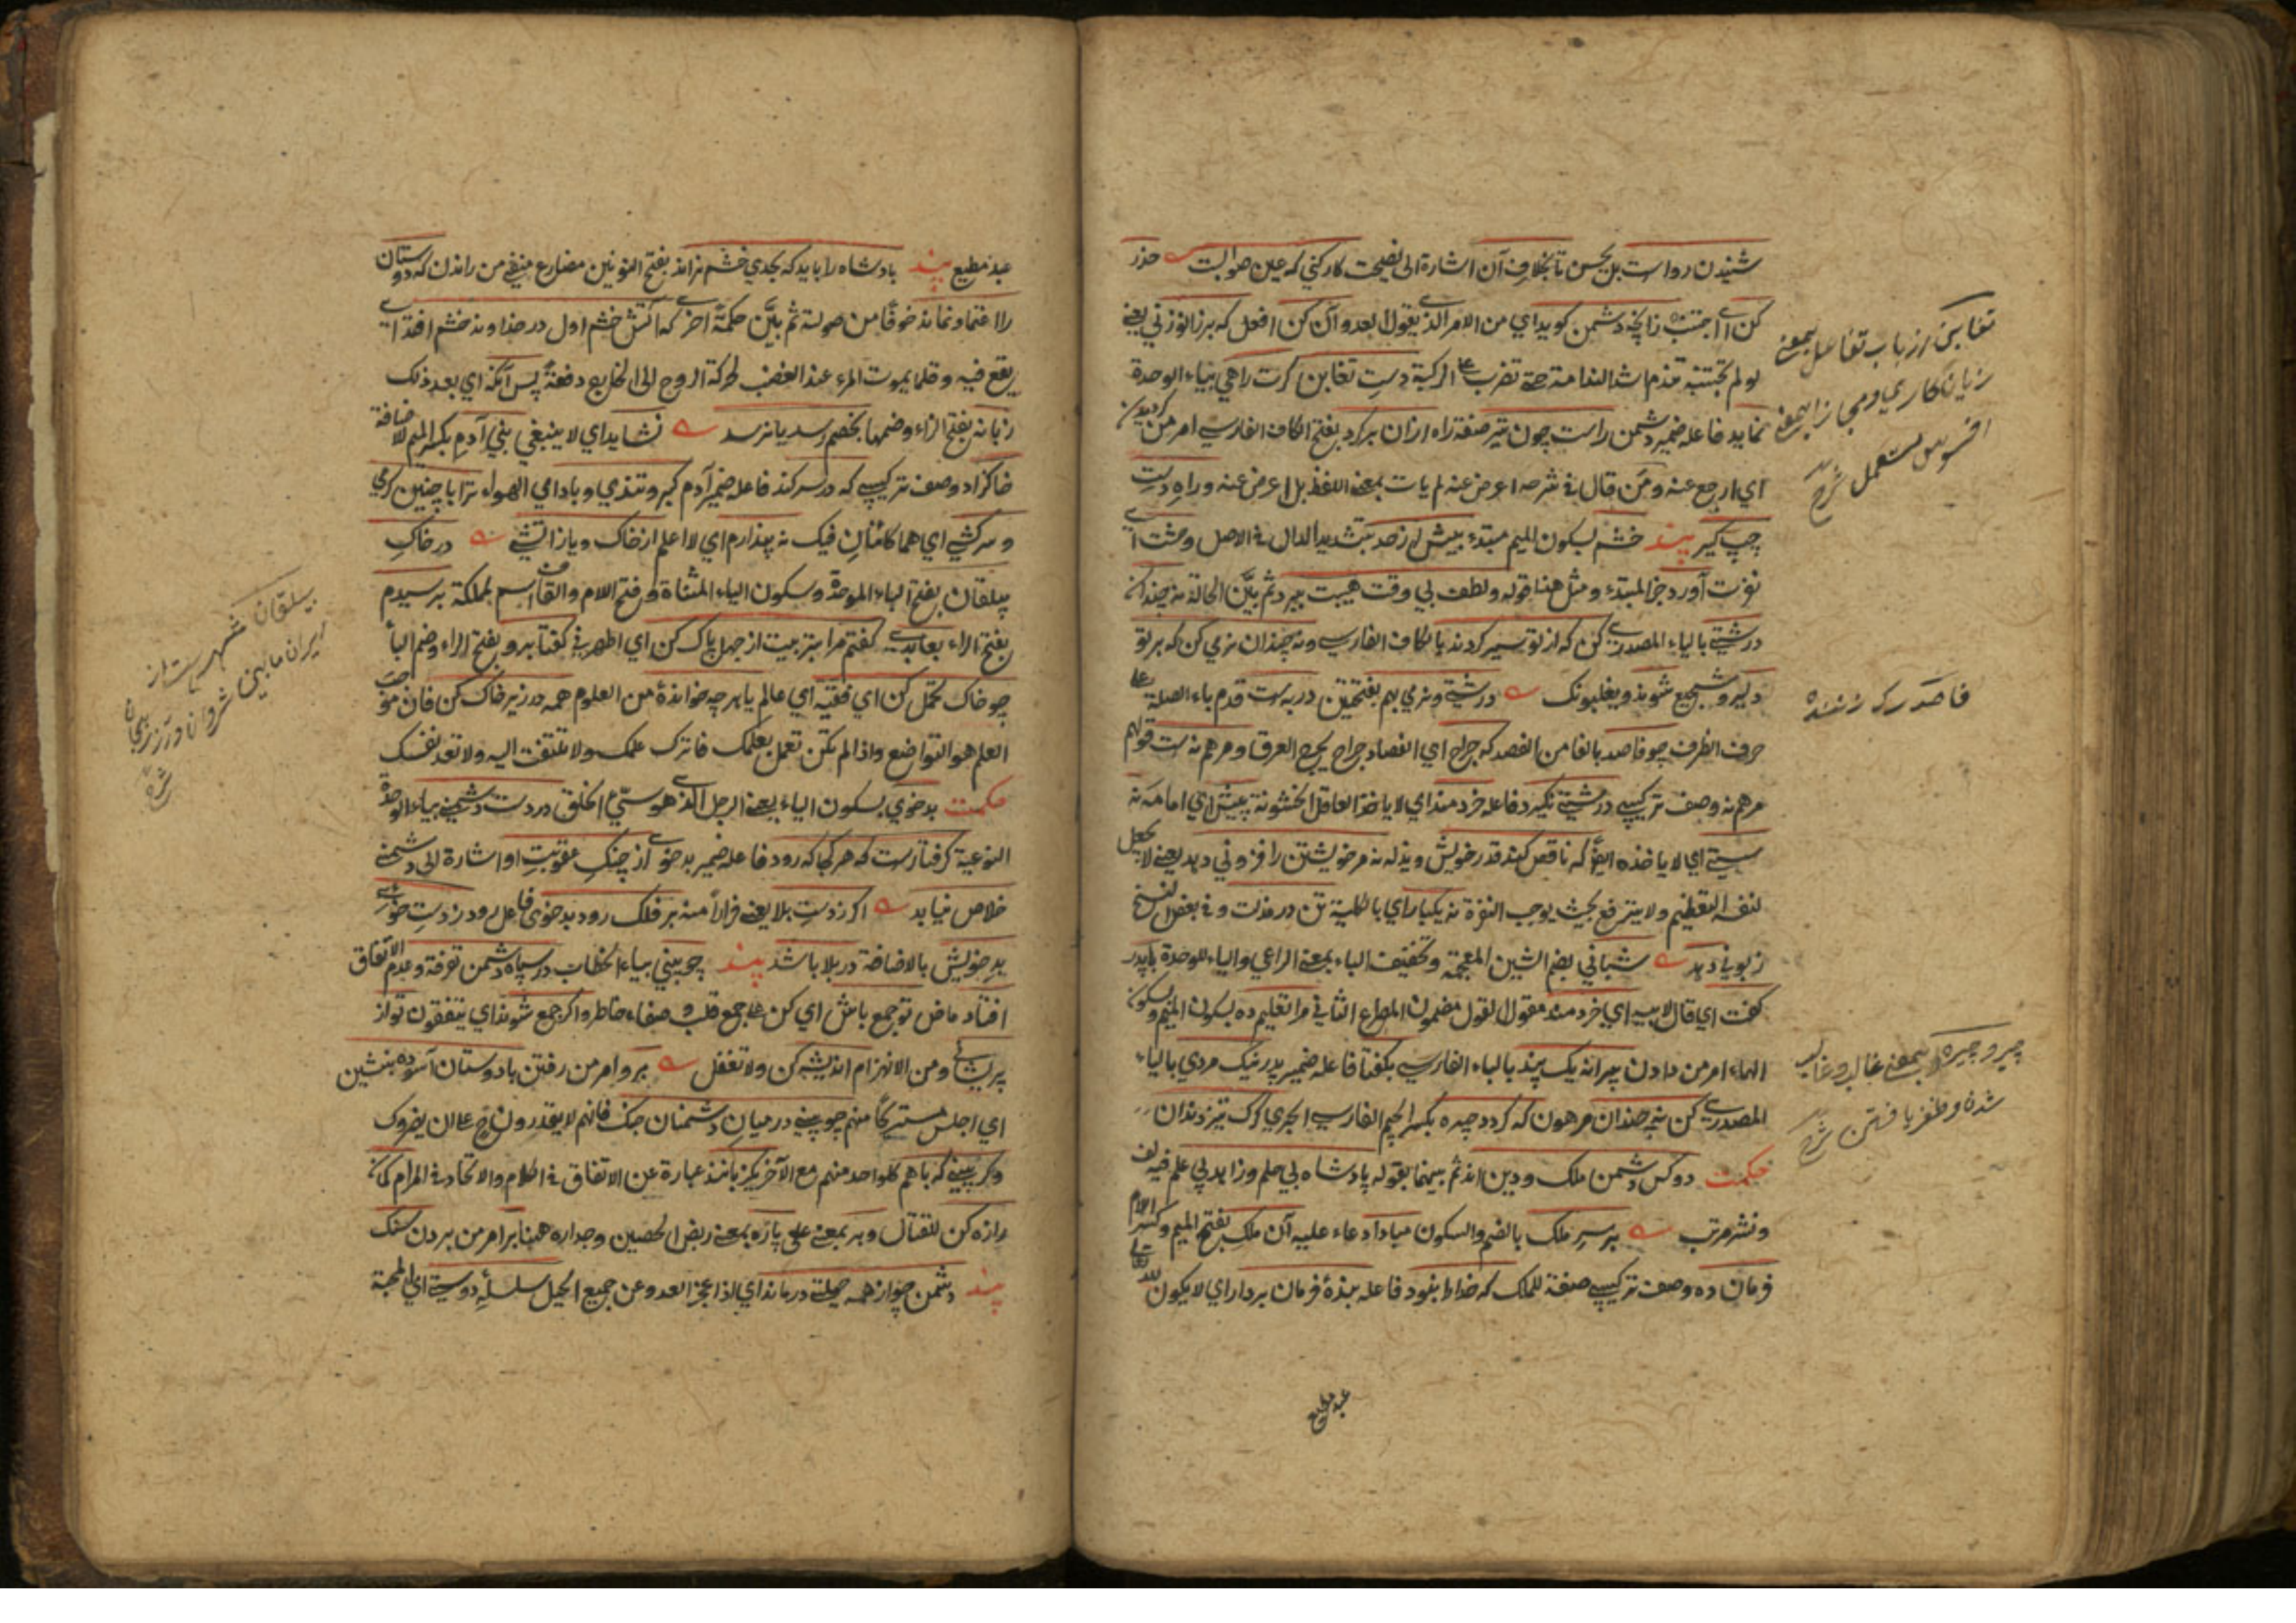 شنیدن رواست بل یحسن تا بخلاف آن اشارة الی نصیحت کار کنی که عین صوابست حذر
کن ای اجتنب زانچه دشمن کوید ای من الامر الذی یقول العدو آن کن افعل که بر زانو زنی یعنی
لو لم تجتنبه تندم اشد الندامة حتی تضرب علی الرکبة دست تغابن کرت راهی بیاء الوحدة
نماید فاعله ضمیر دشمن راست چون تیر صفة راه از آن برکرد بفتح الکاف الفارسی امر من کردیدن
ای ارجع عنه و من قال فی شرحه اعرض عنه لم یات بمعنی اللفظ بل اعرض عنه و راه دست
چپ کیر پند خشم بسکون المیم مبتدء بیش از حد بتشدید الدال فی الاصل وحشت آرد
نفرت آورد خبر المبتدء و مثل هذا قوله و لطف بی وقت هیبت ببرد ثم بیّن الحالة نه چندان
درشتی بالیاء المصدری کن که از تو سیر کردند بالکاف الفارسی و نه چندان نرمی کن که بر تو
دلیر و شجیع شوند و یغلبونک درشتی و نرمی بهم بفتحتین در به ست قدم باء الصلة علی
حرف الظرف چو فاصد بالفا من الفصد که جراح ای الفصاد جراح یجرح العرق و مرهم نه ست قولهم
مرهم نه وصف ترکیبی درشتی نکیرد فاعله خردمند ای لا یاخذ العاقل الخشونة پیش ای امامه نه
سستی ای لا یاخذه ایضا که ناقص کند قدر خویش و یذله نه مر خویشتن را فزونی دهد یعنی لا یجعل
لنفسه التعظیم و لا یترفع بحیث یوجب النفرة نه یکبار ای بالکلیة تن در مذلت و فی بعض النسخ
زبونی دهد شبانی بضم الشین المعجمة و تخفیف الباء بمعنی الراعی و الیاء للوحدة با پدر
کفت ای قال لابیه ای خردمند مقول القول مضمون المصراع الثانی مرا تعلیم ده بسکون المیم و سکون
الهاء امر من دادن پیرانه یک پند بالباء الفارسی بکفتا فاعله ضمیر پدر نیک مردی بالیاء
المصدری کن نه چندان مرهون که کردد چیره بکسر الجیم الفارسی الجری کرک تیز دندان
حکمت دو کس دشمن ملک و دین اند ثم بینهما بقوله پادشاه بی حلم و زاهد بی علم فیه لف
و نشر مرتب بر سر ملک بالضم و السکون مبادا دعاء علیه آن ملک بفتح المیم و کسر اللام
فرمان ده وصف ترکیبی صفة للملک که خدا را نبود فاعله بنده فرمان بردار ای لا یکون لله تعالی
عبد مطیع
تغابن از باب تفاعل بمعنی
زیان کاری و مجازا بمعنی
افسوس مستعمل شرح
فاصد رک زننده
چیر و چیره بمعنی غالب و غالب
شدن و ظفر یافتن شرح
عبد مطیع پند پادشاه را باید که بحدی خشم نراند بفتح النونین مضارع منفی من راندن که دوستان
را اعتماد نماند خوفا من صولته ثم بیّن حکمة اخری که آتش خشم اول در خداوند خشم افتد ای
یقع فیه و قلما یموت المرء عند الغضب لحرکة الروح الی الخارج دفعة پس آنکه ای بعد ذلک
زبانه بفتح الزاء و ضمها بخصم رسد یا نرسد نشاید ای لا ینبغی بنی آدم بکسر المیم للاضافة
خاکزاد وصف ترکیبی که در سر کند فاعله ضمیر آدم کبر و تندی و باد ای الهواء ترا با چنین کرمی
و سرکشی ای هما کائنان فیک نه پندارم ای لا اعلم از خاک و یا از آتشی در خاک
بیلقان بفتح الباء الموحدة و سکون الیاء المثناة و فتح اللام و القاف اسم لمملکة برسیدم
بفتح الراء بعابدی کفتم مرا بتربیت از جهل پاک کن ای اطهرنی کفتا برو بفتح الراء و ضم الباء
چو خاک تحمل کن ای فقیه ای عالم یا هر چه خوانده من العلوم همه در زیر خاک کن فان موجب
العلم هو التواضع و اذا لم تکن تعمل بعلمک فاترک علمک و لا تلتفت الیه و لا تعد نفسک
حکمت بدخوی بسکون الیاء یعنی الرجل الذی هو سیّئ الخلق در دست دشمنی بیاء الوحدة
النوعیة کرفتارست که هر کجا که رود فاعله ضمیر بدخوی از چنک عقوبت او اشارة الی دشمنی
خلاص نیابد اکر ز دست بلا یعنی فرارا منه بر فلک رود بدخوی فاعل رود ز دست خوی
بد خویش بالاضافة در بلا باشد پند چو بینی بیاء الخطاب در سپاه دشمن تفرقة و عدم الاتفاق
افتاد ماض تو جمع باش ای کن علی جمع قلب و صفاء خاطر و اکر جمع شوند ای یتفقون تو از
پریشانی و من الانهزام اندیشه کن و لا تغفل برو امر من رفتن با دوستان آسوده بنشین
ای اجلس مستریحا منهم چو بینی در میان دشمنان جنک فانهم لا یقدرون ح علی ان یضروک
و کر بینی که با هم کل واحد منهم مع الآخر یکزبانند عبارة عن الاتفاق فی الکلام و الاتحاد فی المرام کمانرا
زه کن للقتال و بر بمعنی علی باره بمعنی ربض الحصین و جداره هنا بر امر من بردن سنک
پند دشمن چو از همه حیلتی درماند ای اذا عجز العدو عن جمیع الحیل سلسلهٔ دوستی ای المحبة
بیلقان شهریست از
ایران مابین شروان و آذربیجان
شرح